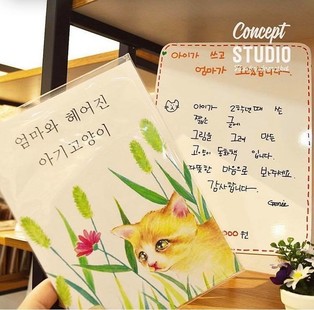 Concept
STUDIO
아이가 쓰고
엄마가 그렸습니다
엄마와 헤어진
아기고양이
아이가 2학년때 쓴
짧은 글에
그림을 그려 만든
고양이 동화책 입니다.
따뜻한 마음으로 봐주세요.
감사합니다
000 원